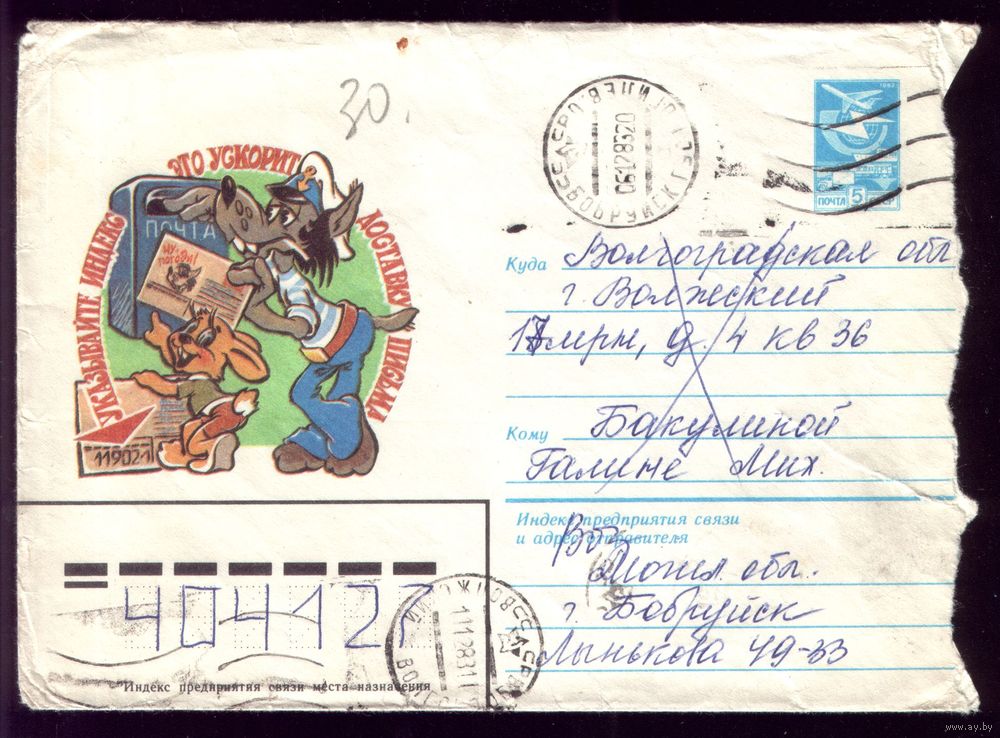 30.
УКАЗЫВАЙТЕ ИНДЕКС
ЭТО УСКОРИТ
ДОСТАВКУ ПИСЬМА
ПОЧТА
НУ, ПОГОДИ!
119021
БОБРУЙСК
06128320
1982
ПОЧТА 5 СССР
Куда Волгоградская обл
г. Волжский
17 мрн, д. 4 кв 36
Кому Бакулиной
Галине Мих.
Индекс предприятия связи
и адрес отправителя
Могил. обл.
г. Бобруйск
Лынькова 49-33
404127
Индекс предприятия связи места назначения
СССР
www.ay.by